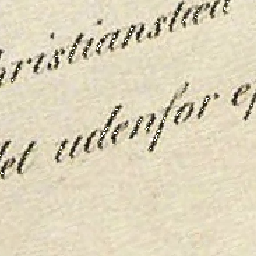 hristianstæd
det udenfor ef